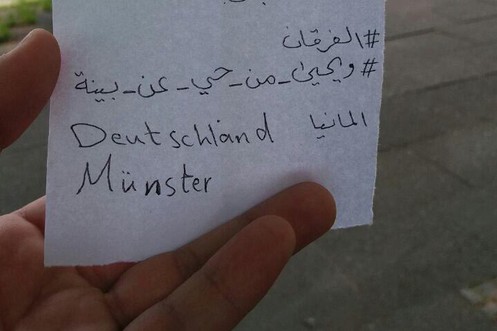 #الفرقان
#ويحيى_من_حي_عن_بينة
Deutschland المانيا
Münster